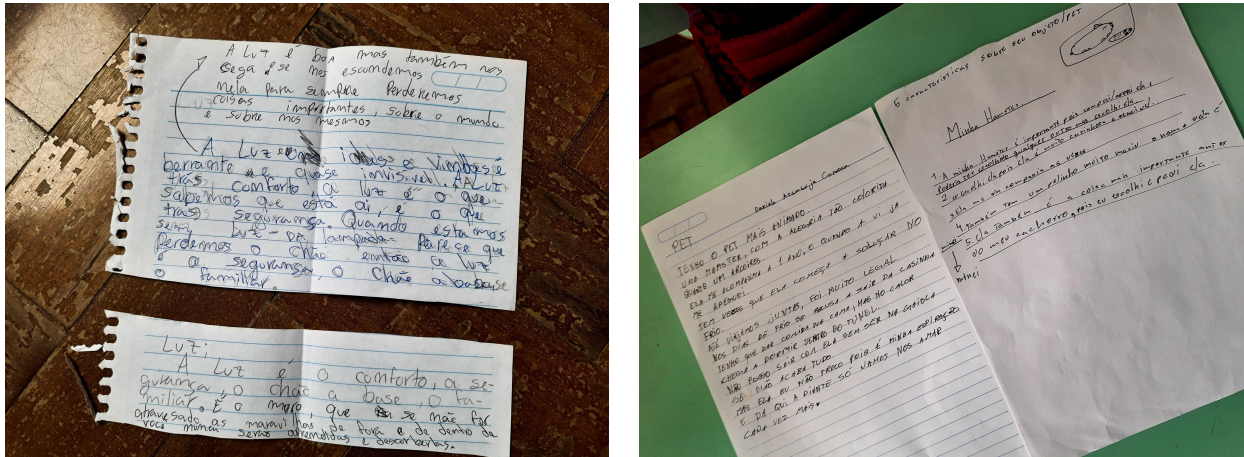 A Luz é boa mas também nos
sega e se nos escondemos
nela para sempre perderemos
coisas importantes, sobre o mundo
e sobre nos mesmos
A Luz
berrante e quase invisivel. A Luz
tras conforto a luz é o que
sabemos que esta ai, e o que
tras segurança. Quando estamos
sem Luz DA lampada Parece que
Perdemos o chão enntão a luz
é a segurança o chão a base,
o familiar.
Luz:
A Luz é o comforto, a se-
gurança, o chão a base, o fa-
miliar. É o muro, que se não for
atravesado as maravilhas de fora e de dentro de
você nunca seras aprendidas e descorbertas.
PET
TENHO O PET MAIS ANIMADO.
UMA HAMSTER, COM A ALEGRIA TÃO COLORIDA
QUANTO UM ARCOIRES.
ELA ME ACOMPANHA A 1 ANO, E QUANDO A VI JA
ME APEGUEI.
TEM VEZES QUE ELA COMEÇA A SOLUÇAR NO
FRIO.
ATÉ VIAJEMOS JUNTAS, FOI MUITO LEGAL.
NOS DIAS DE FRIO SE RECUSA A SAIR DA CASINHA
TENHO QUE DAR COMIDA NA CAMA, MAS NO CALOR
CHEGA A DORMIR DENTRO DO TUNEL.
NÃO POSSO SAIR COM ELA SEM SER NA GAIOLA
SE NÃO ACABA TUDO
MAS ELA EU NÃO TROCO POIS É MINHA INSPIRAÇÃO.
E DA QUI A DIANTE SÓ VAMOS NOS AMAR
CADA VEZ MAIS.
5 caracteristicas sobre seu objeto/PET
Minha Hamster.
1. A minha Hamster é importante pois comprei/
Poderia ter escolhido qualquer outro mas escolhi ela.
2. eu escolhi ela pois ela é muito carinhosa e
3. Ela me da companhia as vezes.
4. Também tem um pelinho muito macio o nome dela é
5. Ela Também é a coisa mais importante
do meu cachorro, pois eu escolhi e pedi ela.